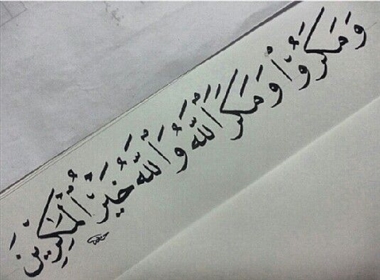 وَمَكَرُوا وَمَكَرَ اللَّهُ وَاللَّهُ خَيْرُ الْمَاكِرِينَ